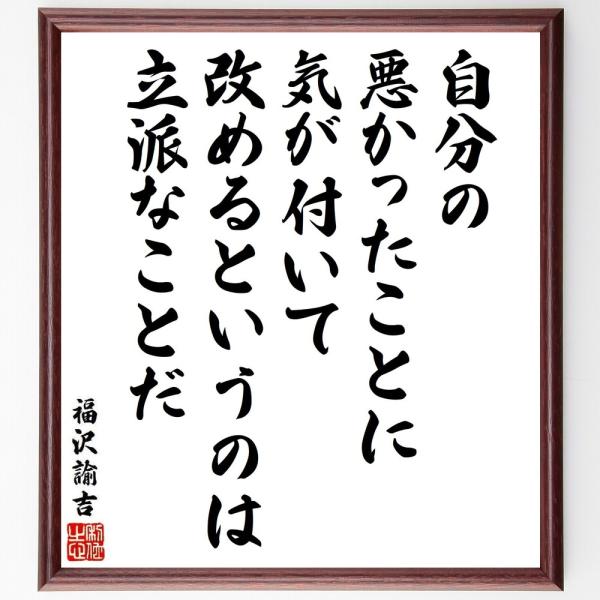 自分の
悪かったことに
気が付いて
改めるというのは
立派なことだ
福沢諭吉